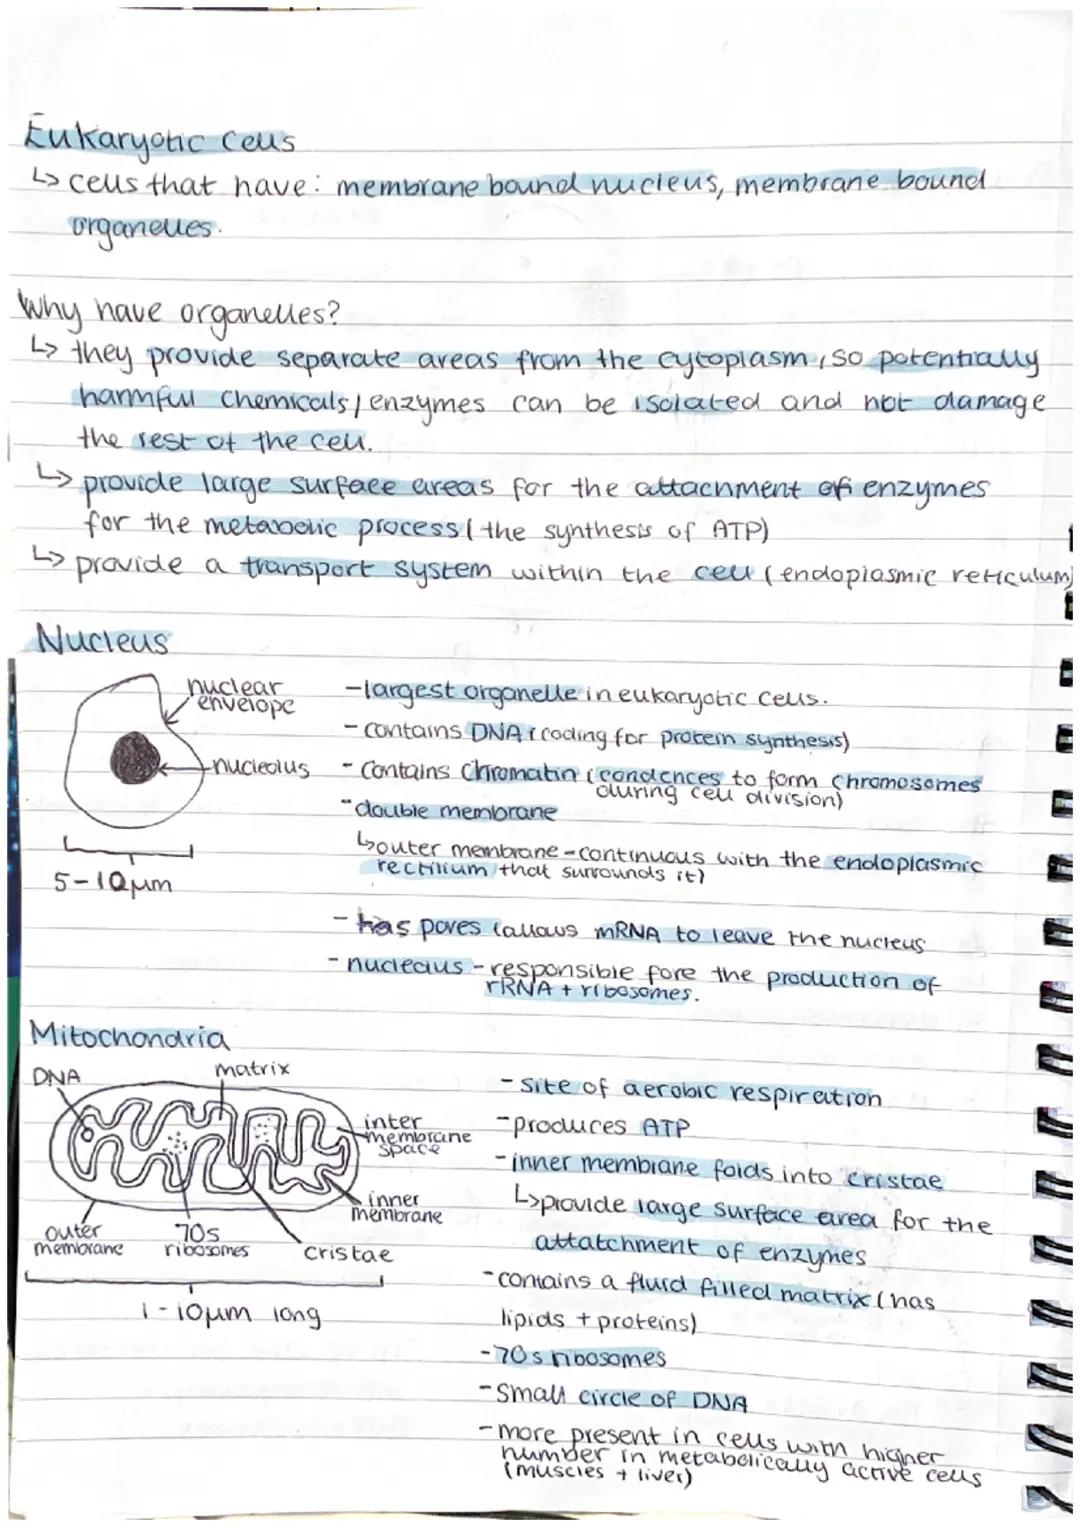 Eukaryotic Cells
↳ cells that have: membrane bound nucleus, membrane bound
organelles.
Why have organelles?
↳ they provide separate areas from the cytoplasm, so potentially
harmful chemicals/enzymes can be isolated and not damage
the rest of the cell.
↳ provide large surface areas for the attachment of enzymes
for the metabolic process (the synthesis of ATP)
↳ provide a transport system within the cell (endoplasmic reticulum)
Nucleus
nuclear
envelope
nucleolus
5-10μm
-largest organelle in eukaryotic cells.
- contains DNA (coding for protein synthesis)
- Contains Chromatin (condences to form chromosomes
during cell division)
- double membrane
↳outer membrane - continuous with the endoplasmic
rectilium (that surrounds it)
- has pores (allows mRNA to leave the nucleus
- nucleolus - responsible fore the production of
rRNA + ribosomes.
Mitochondria
DNA
matrix
inter
membrane
space
inner
membrane
outer
membrane
70s
ribosomes
cristae
1-10μm long
- site of aerobic respiration
- produces ATP
- inner membrane folds into cristae
↳provide large surface area for the
attatchment of enzymes
- contains a fluid filled matrix (has
lipids + proteins)
-70s ribosomes
- Small circle of DNA
- more present in cells with higher
number in metabolically active cells
(muscles + liver)